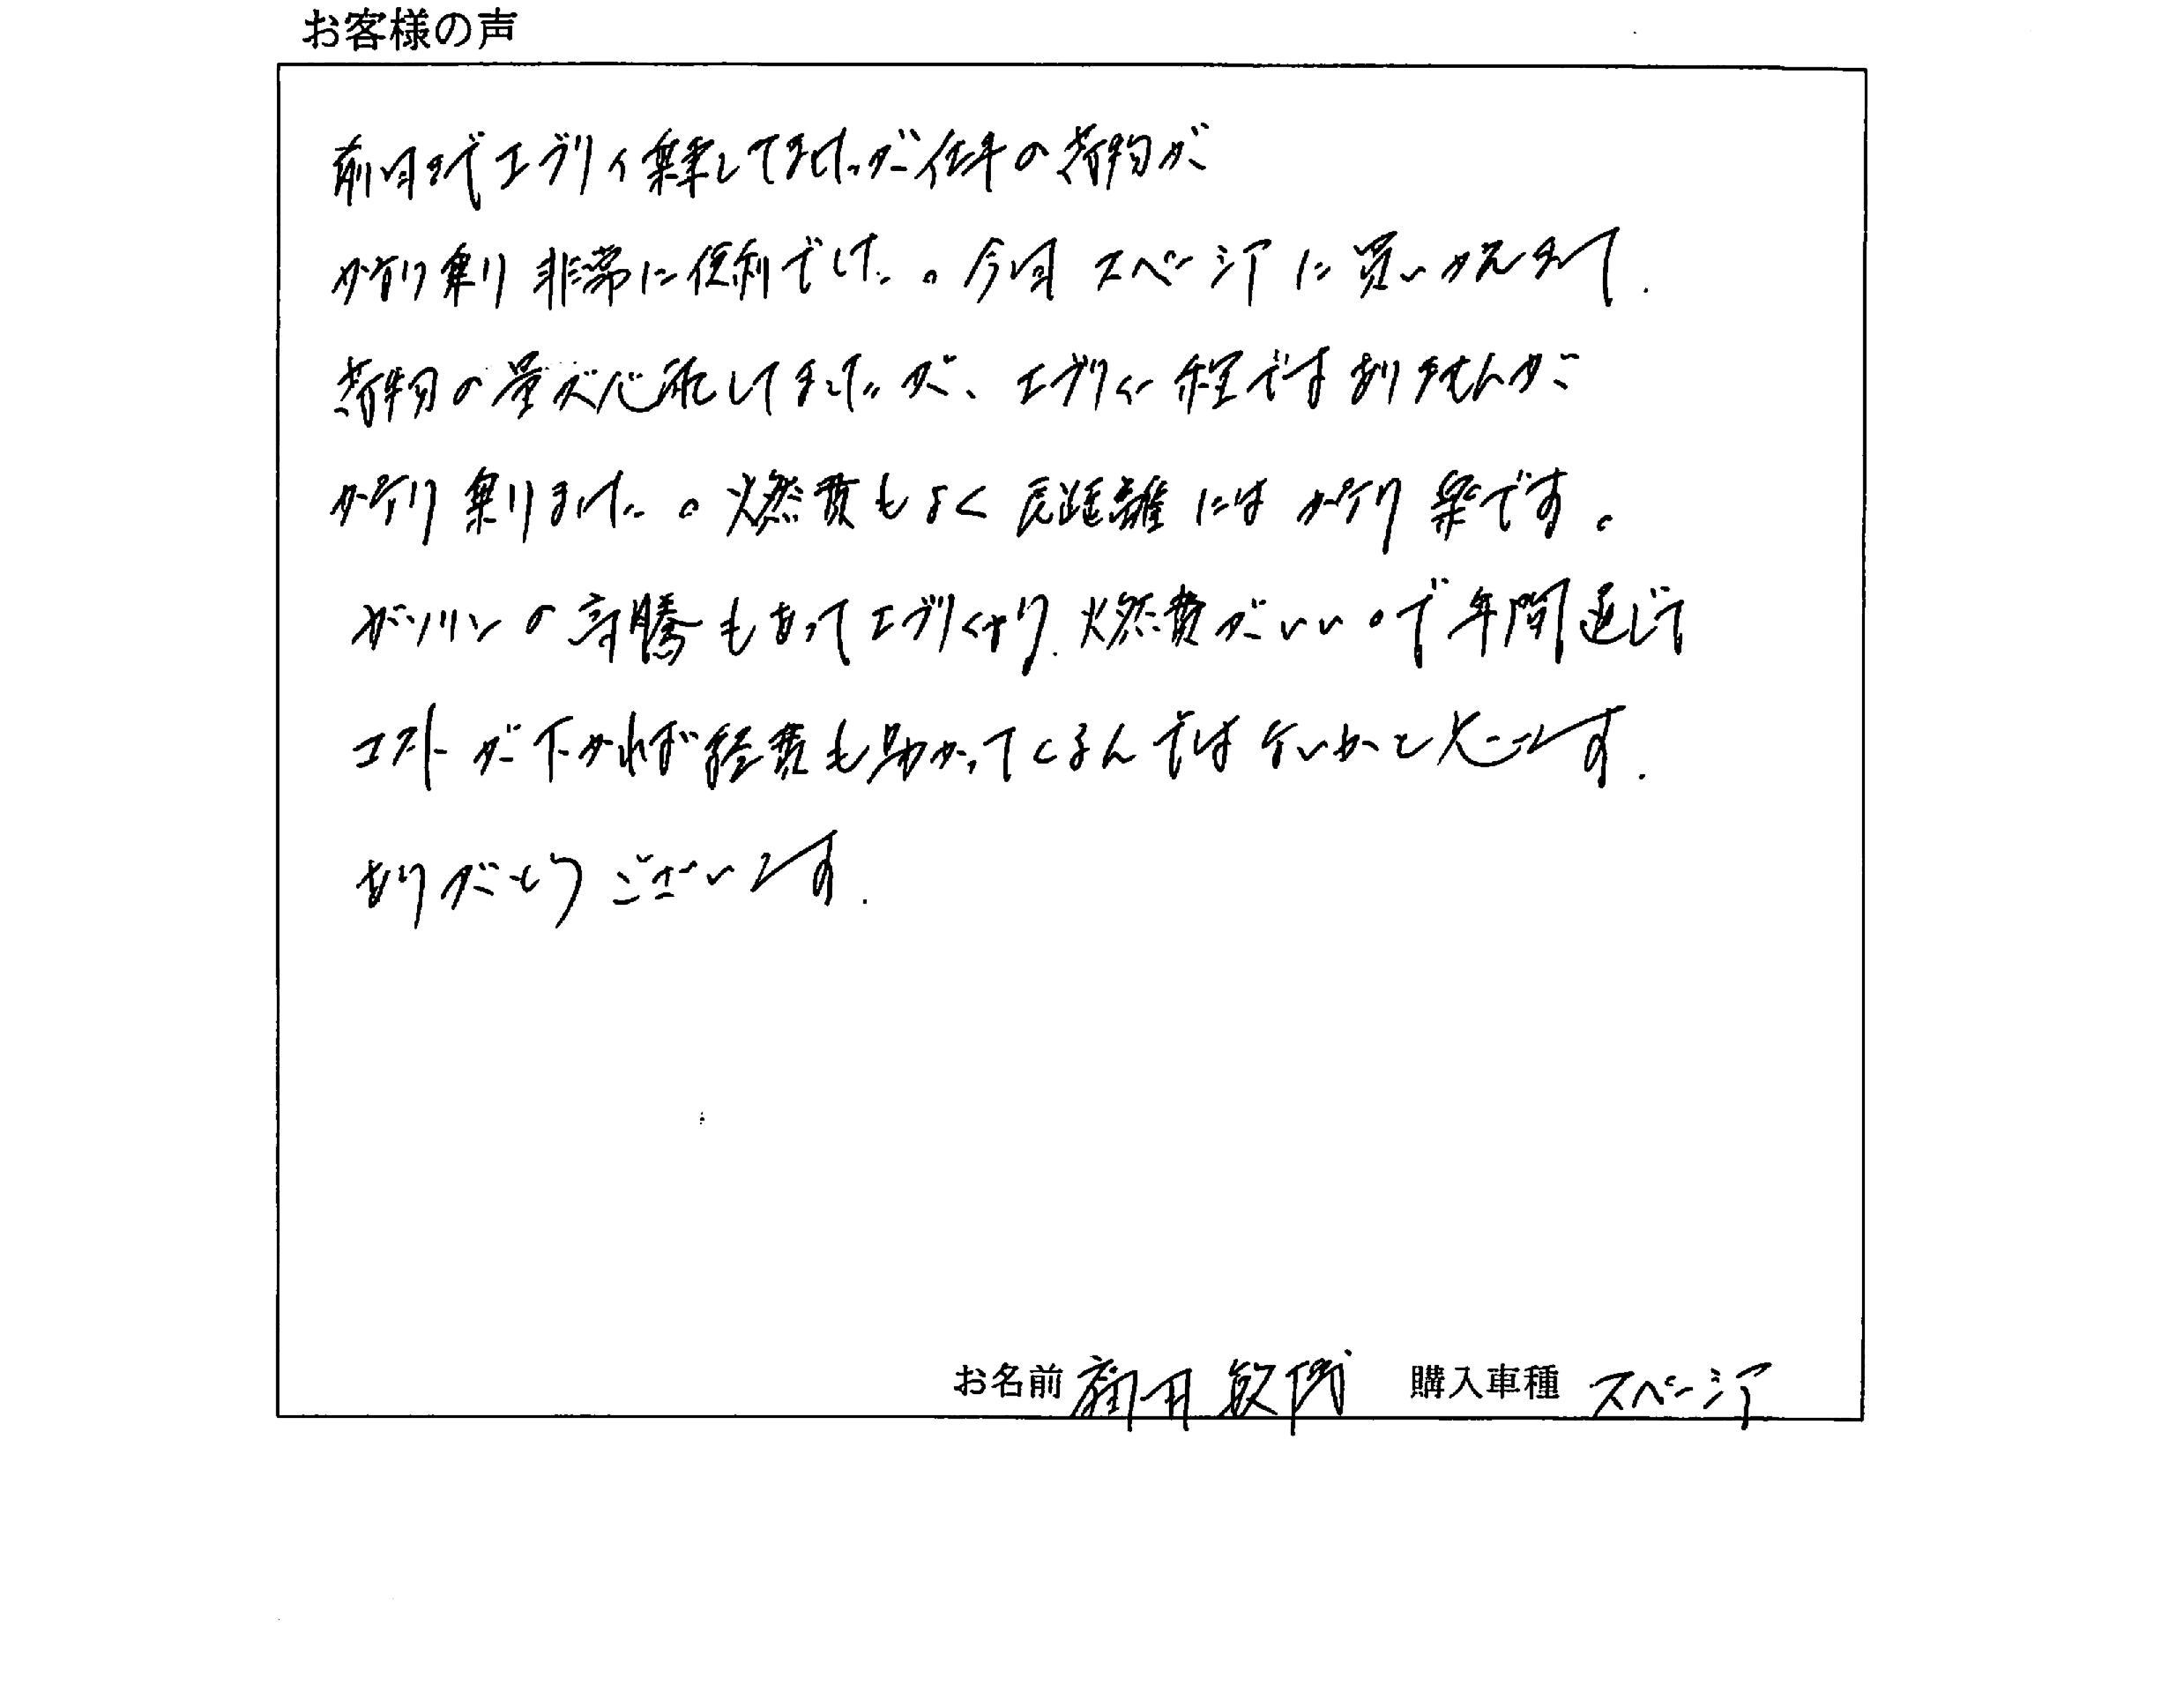 お客様の声
前回までエブリイ乗車してましたが仕事の荷物が
かなり乗り非常に便利でした。今回スペーシアに買いかえまして
荷物の量が心配してましたが、エブリィー程ではありませんが
かなり乗りました。燃費もよく長距離にはかなり楽です。
ガソリンの高騰もあってエブリィより燃費がいいので年間通じて
コストが下がれば経費も助かってくるんではないかと思います.
ありがとうございます.
お名前 敏 購入車種 スペーシア